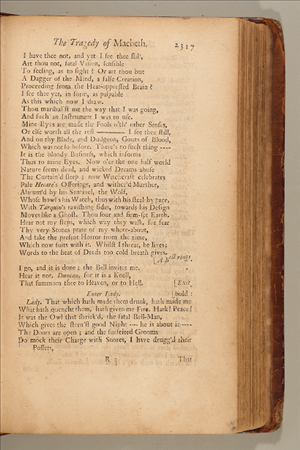 The Tragedy of Macbeth.
2317
I have thee not, and yet I see thee still,
Art thou not, fatal Vision, sensible
To feeling, as to sight? Or art thou but
A Dagger of the Mind, a false Creation,
Proceeding from the Heat-oppressed Brain?
I see thee yet, in form, as palpable
As this which now I draw.
Thou marshal'st me the way that I was going,
And such an Instrument I was to use.
Mine Eyes are made the Fools o'th' other Senses,
Or else worth all the rest ——— I see thee still,
And on thy Blade, and Dudgeon, Gouts of Blood,
Which was not so before. There's no such thing ——
It is the bloody Business, which informs
Thus to mine Eyes. Now o'er the one half world
Nature seems dead, and wicked Dreams abuse
The Curtain'd sleep; now Witchcraft celebrates
Pale Hecate's Offerings, and wither'd Murther,
Alarum'd by his Sentinel, the Wolf,
Whose howl's his Watch, thus with his stealthy pace,
With Tarquin's ravishing sides, towards his Design
Moves like a Ghost. Thou sour and firm-set Earth,
Hear not my steps, which way they walk, for fear
Thy very Stones prate of my where-about,
And take the present Horror from the time,
Which now suits with it. Whilst I threat, he lives;
Words to the heat of Deeds too cold breath gives.
[A Bell rings.
I go, and it is done; the Bell invites me.
Hear it not, Duncan, for it is a Knell,
That summons thee to Heaven, or to Hell. [Exit.
Enter Lady.
[bold:
Lady. That which hath made them drunk, hath made me
What hath quencht them, hath given me Fire. Hark! Peace!
It was the Owl that shriek'd, the fatal Bell-Man,
Which gives the stern'st good Night —— he is about it ——
The Doors are open; and the surfeited Grooms
Do mock their Charge with Snores, I have drugg'd their
Possets,
That